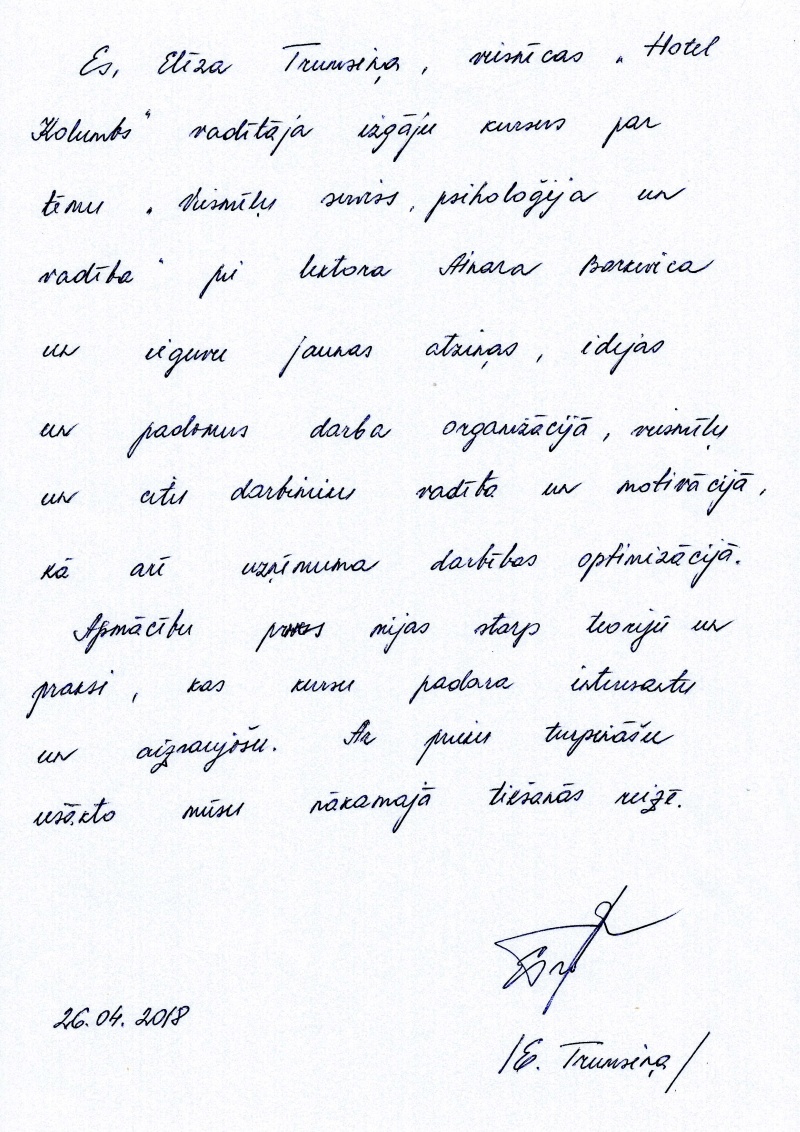 Es, Elīza Trumsiņa, viesnīcas „Hotel
Kolumbs" vadītāja izgāju kursus par
tēmu „Viesmīļu serviss, psiholoģija un
vadība" pie lektora Ainara Barkeviča
un ieguvu jaunas atziņas, idejas
un padomus darba organizācijā, viesmīļu
un citu darbinieku vadībā un motivācijā,
kā arī uzņēmuma darbības optimizācijā.
Apmācību mijas starp teoriju un
praksi, kas kursu padara interesantu
un aizraujošu. Ar prieku turpināšu
iesākto mūsu nākamajā tikšanās reizē.
26.04.2018
/E. Trumsiņa/